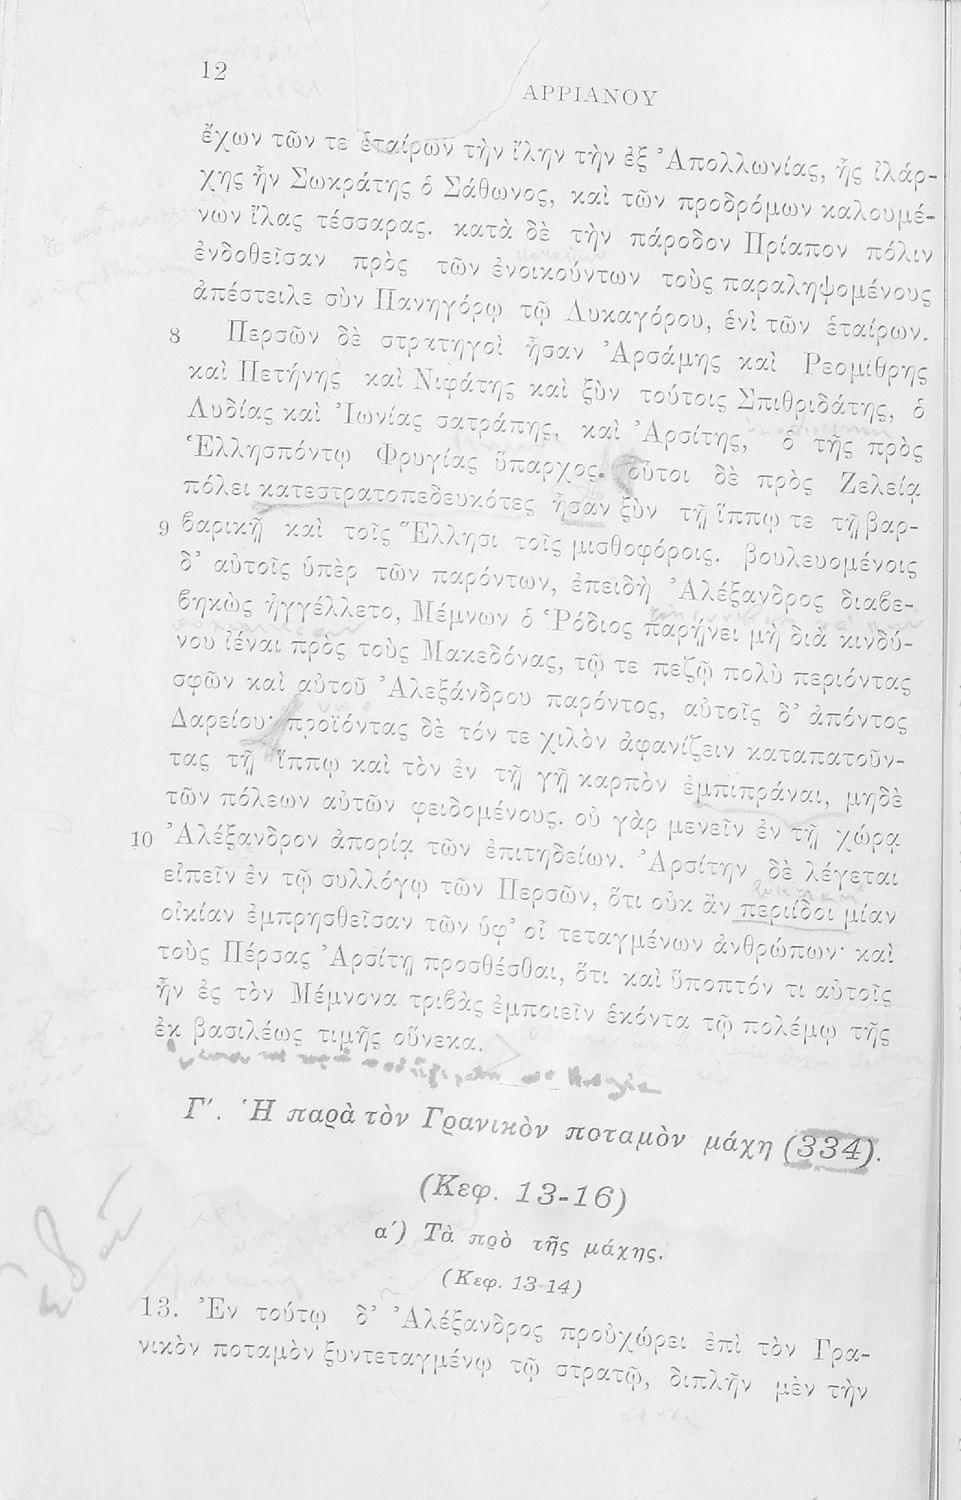 12
ΑΡΡΙΑΝΟΥ
ἔχων τῶν τε ἑταίρων τὴν ἴλην τὴν ἐξ Ἀπολλωνίας, ἧς ἰλάρ-
χης ἦν Σωκράτης ὁ Σάθωνος, καὶ τῶν προδρόμων καλουμέ-
νων ἴλας τέσσαρας. κατὰ δὲ τὴν πάροδον Πρίαπον πόλιν
ἐνδοθεῖσαν πρὸς τῶν ἐνοικούντων τοὺς παραληψομένους
ἀπέστειλε σὺν Πανηγόρῳ τῷ Λυκαγόρου, ἑνὶ τῶν ἑταίρων.
8 Περσῶν δὲ στρατηγοὶ ἦσαν Ἀρσάμης καὶ Ρεομίθρης
καὶ Πετήνης καὶ Νιφάτης καὶ ξὺν τούτοις Σπιθριδάτης, ὁ
Λυδίας καὶ Ἰωνίας σατράπης, καὶ Ἀρσίτης, ὁ τῆς πρὸς
Ἑλλησπόντῳ Φρυγίας ὕπαρχος. οὗτοι δὲ πρὸς Ζελείᾳ
πόλει κατεστρατοπεδευκότες ἦσαν ξὺν τῇ ἵππῳ τε τῇ βαρ-
9 βαρικῇ καὶ τοῖς Ἕλλησι τοῖς μισθοφόροις. βουλευομένοις
δ’ αὐτοῖς ὑπὲρ τῶν παρόντων, ἐπειδὴ Ἀλέξανδρος διαβε-
βηκὼς ἠγγέλλετο, Μέμνων ὁ Ῥόδιος παρῄνει μὴ διὰ κινδύ-
νου ἰέναι πρὸς τοὺς Μακεδόνας, τῷ τε πεζῷ πολὺ περιόντας
σφῶν καὶ αὐτοῦ Ἀλεξάνδρου παρόντος, αὐτοῖς δ’ ἀπόντος
Δαρείου· προϊόντας δὲ τόν τε χιλὸν ἀφανίζειν καταπατοῦν-
τας τῇ ἵππῳ καὶ τὸν ἐν τῇ γῇ καρπὸν ἐμπιπράναι, μηδὲ
τῶν πόλεων αὐτῶν φειδομένους. οὐ γὰρ μενεῖν ἐν τῇ χώρᾳ
10 Ἀλέξανδρον ἀπορίᾳ τῶν ἐπιτηδείων. Ἀρσίτην δὲ λέγεται
εἰπεῖν ἐν τῷ συλλόγῳ τῶν Περσῶν, ὅτι οὐκ ἂν περιίδοι μίαν
οἰκίαν ἐμπρησθεῖσαν τῶν ὑφ’ οἷ τεταγμένων ἀνθρώπων· καὶ
τοὺς Πέρσας Ἀρσίτῃ προσθέσθαι, ὅτι καὶ ὕποπτόν τι αὐτοῖς
ἦν ἐς τὸν Μέμνονα τριβὰς ἐμποιεῖν ἑκόντα τῷ πολέμῳ τῆς
ἐκ βασιλέως τιμῆς οὕνεκα.
Γ’. Ἡ παρὰ τὸν Γρανικὸν ποταμὸν μάχη (334).
(Κεφ. 13-16)
α’) Τὰ πρὸ τῆς μάχης.
(Κεφ. 13-14)
13. Ἐν τούτῳ δ’ Ἀλέξανδρος προὐχώρει ἐπὶ τὸν Γρα-
νικὸν ποταμὸν ξυντεταγμένῳ τῷ στρατῷ, διπλῆν μὲν τὴν